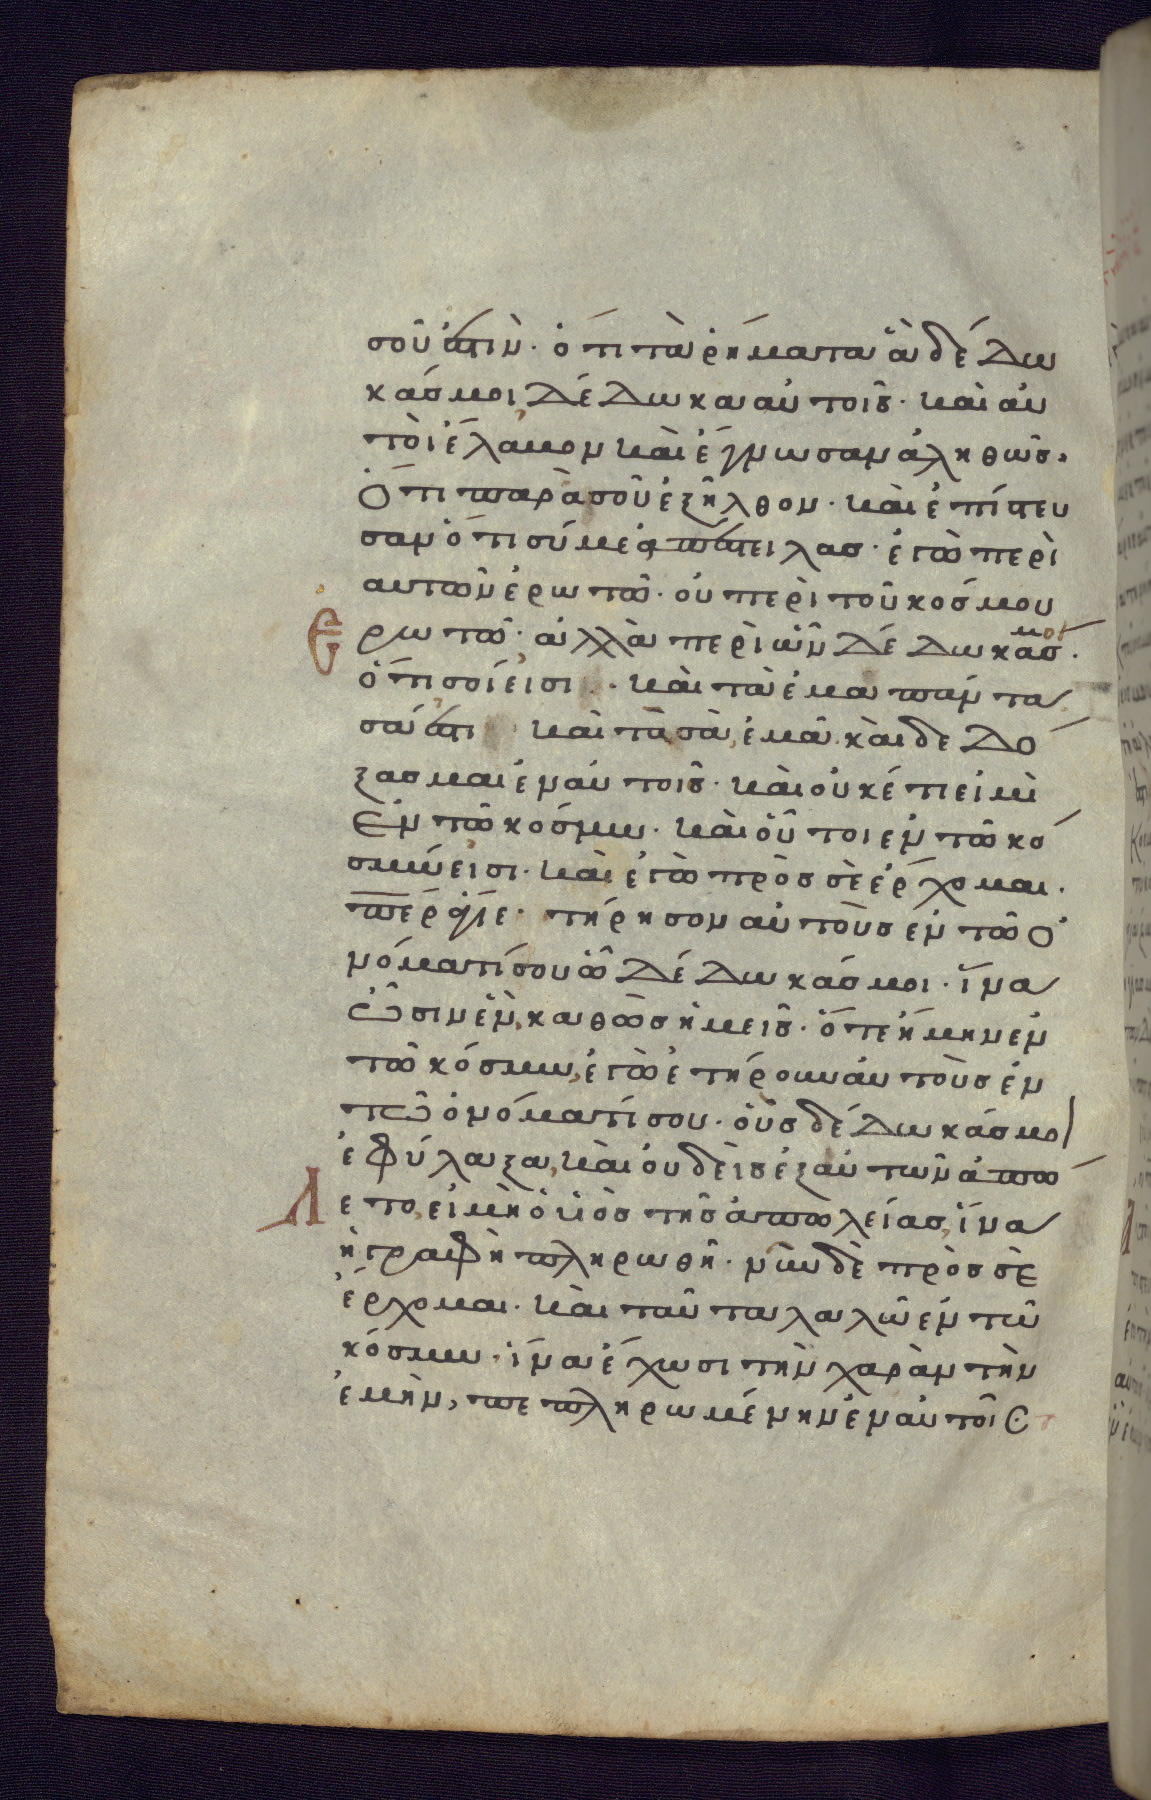 σοῦ ἐστιν· ὅτι τὰ ῥήματα ἃ δέδω
κάσ μοι, δέδωκα αὐτοῖσ· καὶ αὐ
τοὶ ἔλαβον καὶ ἔγνωσαν ἀληθῶσ·
Ὅτι παρὰ σοῦ ἐξῆλθον· καὶ ἐπίστευ
σαν ὅτι σύ με ἀπέστειλασ· ἐγὼ περὶ
αυτῶν ἐρωτῶ· οὐ περὶ τοῦ κόσμου
Ερωτῶ· ἀλλὰ περὶ ὧν δέδωκάσ μοι·
ὅτι σοί εἰσι· καὶ τὰ ἐμὰ πάντα
σά ἐστι καὶ τὰ σὰ ἐμὰ· καὶ δεδό
ξασμαι ἐν αὐτοῖσ· καὶ οὐκέτι εἰμὶ
Ἐν τῶ κόσμω· καὶ οὗτοι ἐν τῶ κό
σμω εἰσι· καὶ ἐγὼ πρὸσ σὲ ἔρχομαι·
περ ἅγιε· τήρησον αὐτοὺσ ἐν τῶ ὀ
νόματί σου ὧ δέδωκάσ μοι· ἵνα
ὦσιν ἓν, καθὼσ ἡμεῖσ· ὅτε ἤμην ἐν
τῶ κόσμω, ἐγὼ ἐτήρουν αὐτοὺσ ἐν
τῶ ὀνόματί σου· οὓσ δέδωκάσ μοι
ἐφύλαξα, καὶ οὐδεὶσ ἐξ αὐτῶν ἀπώ
Λετο, εἰ μὴ ὁ υἱὸσ τῆσ ἀπωλείασ, ἵνα
ἡ γραφὴ πληρωθῆ· νῦν δὲ πρὸσ σὲ
ἔρχομαι· καὶ ταῦτα λαλῶ ἐν τῶ
κόσμω· ἵνα ἔχωσι τὴν χαρὰν τὴν
ἐμὴν, πεπληρωμένην ἐν αὐτοῖσ